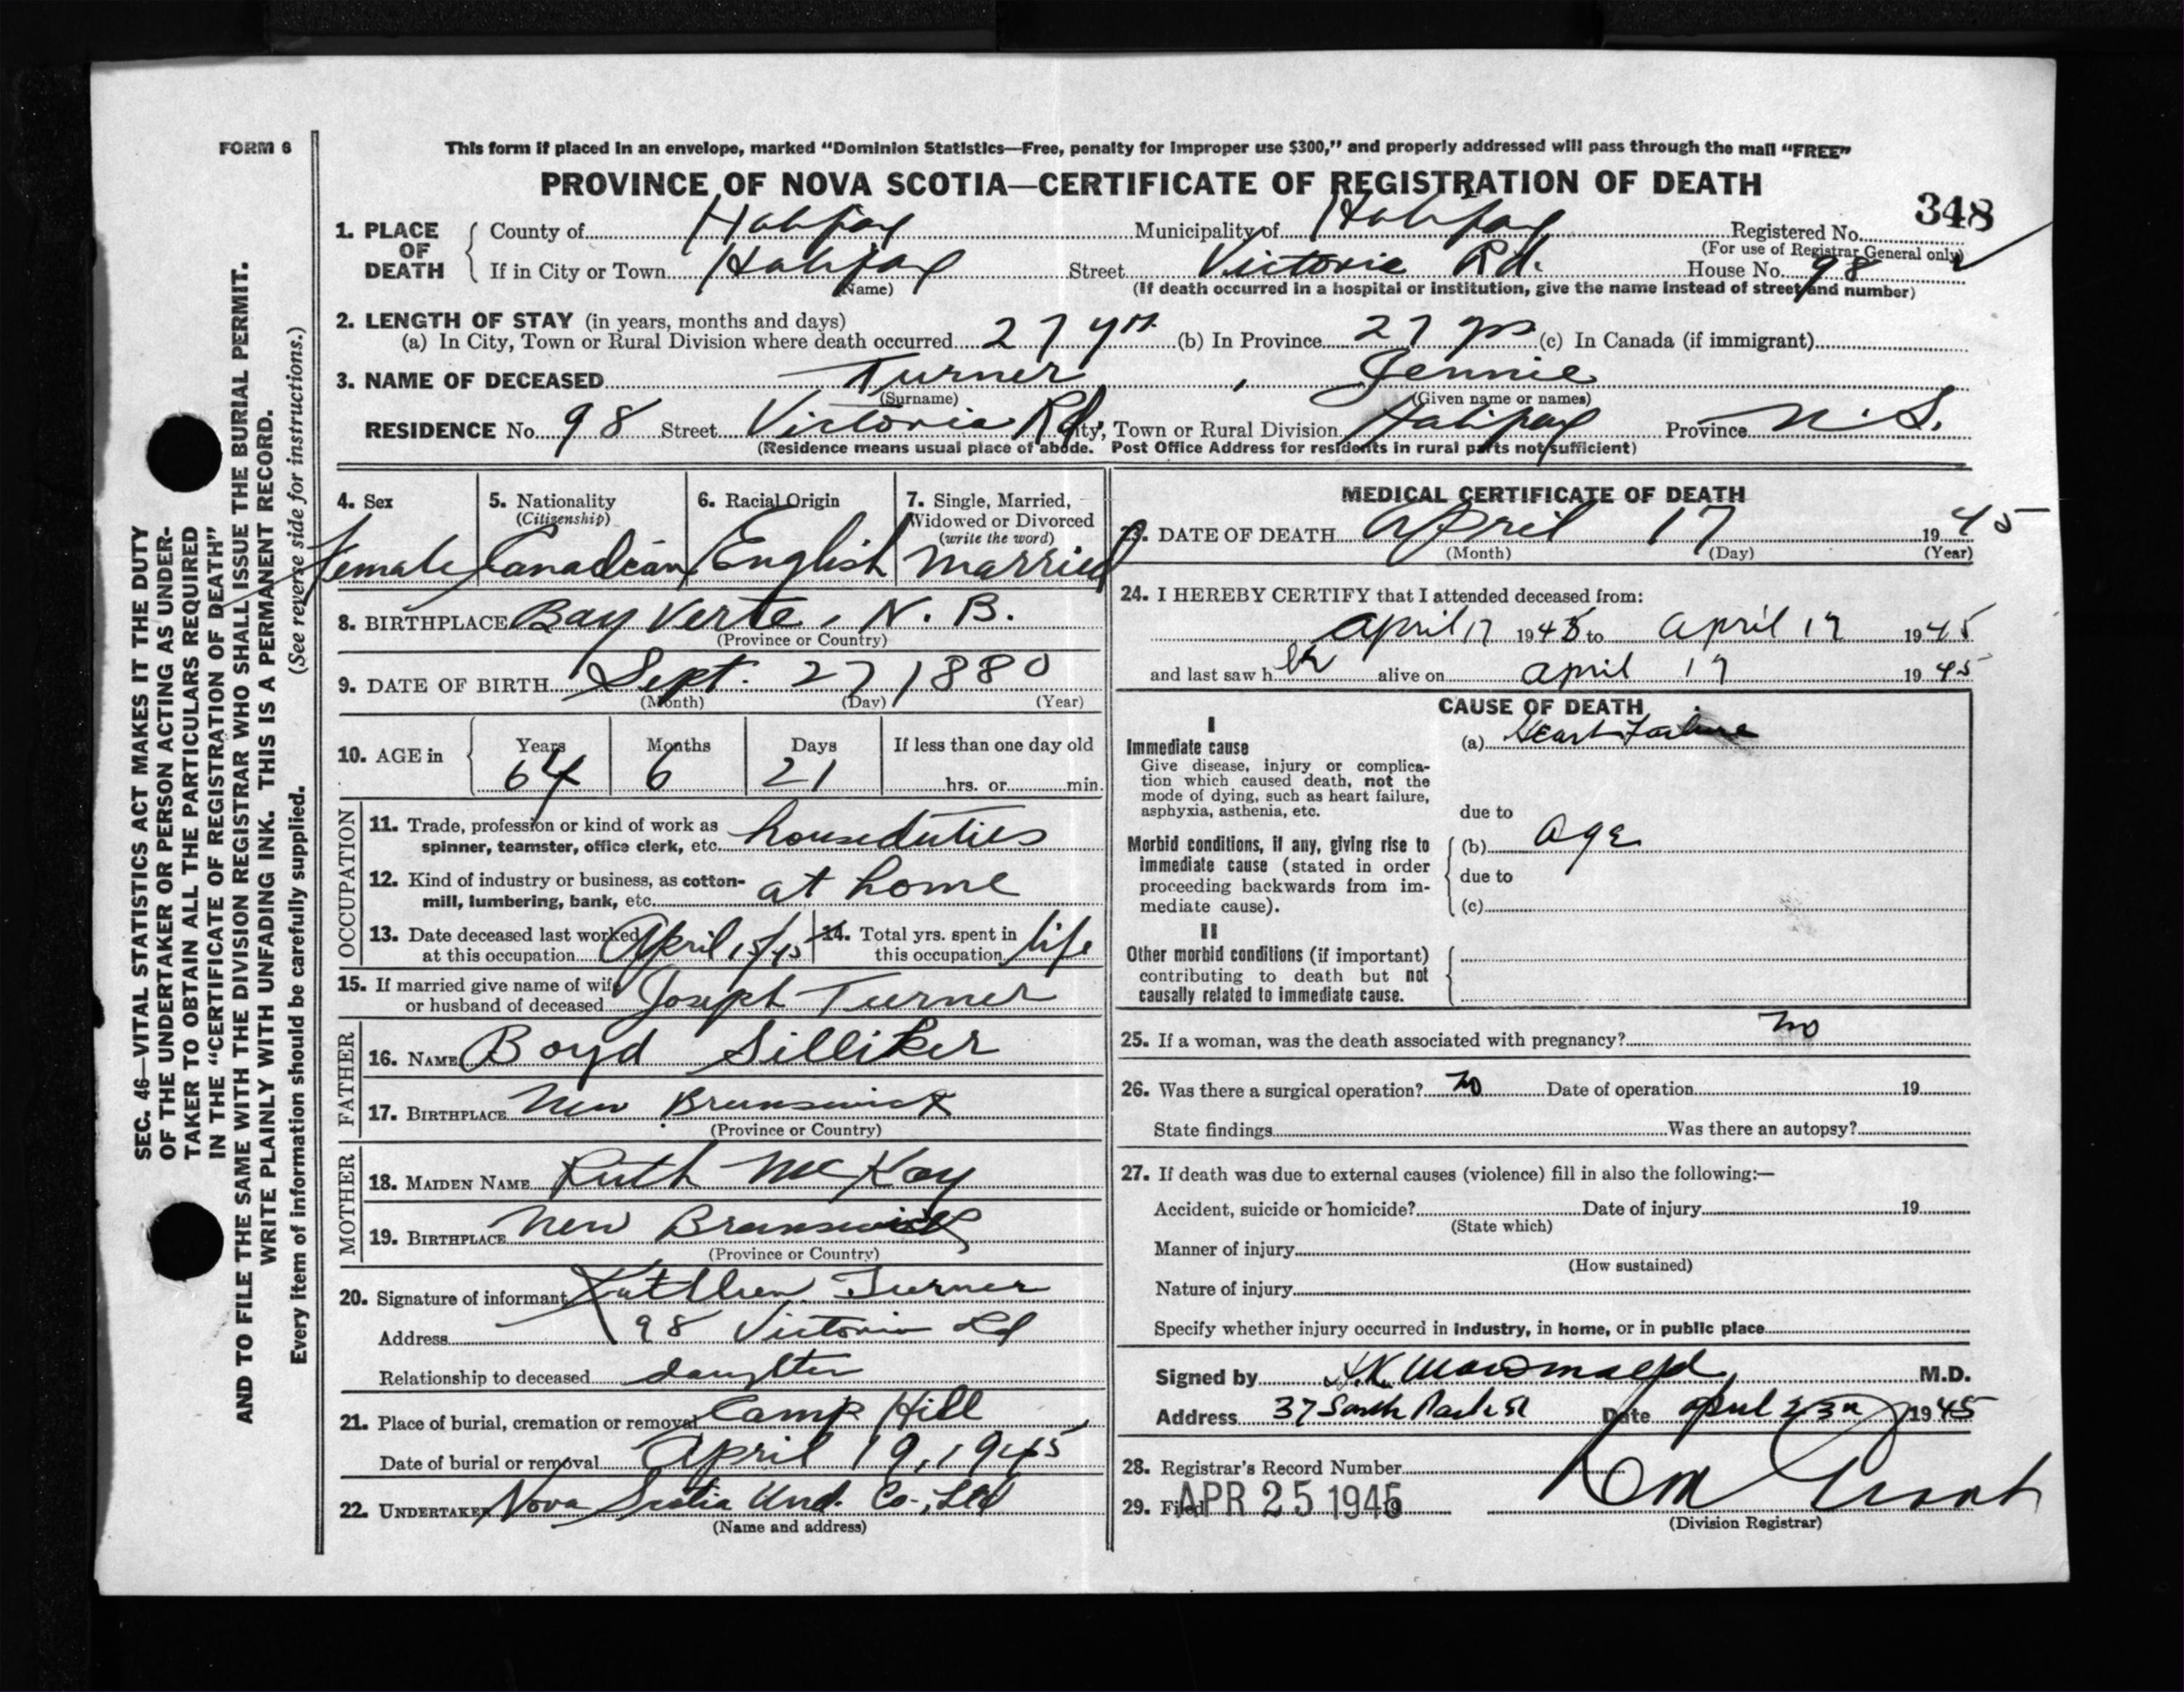 FORM 6
This form if placed in an envelope, marked "Dominion Statistics—Free, penalty for improper use $300," and properly addressed will pass through the mail "FREE"
PROVINCE OF NOVA SCOTIA—CERTIFICATE OF REGISTRATION OF DEATH
348
1. PLACE OF DEATH
County of Halifax Municipality of Halifax Registered No.
(For use of Registrar General only)
If in City or Town Halifax Street Victoria Rd. House No. 98
(Name) (If death occurred in a hospital or institution, give the name instead of street and number)
2. LENGTH OF STAY (in years, months and days)
(a) In City, Town or Rural Division where death occurred 27 yrs. (b) In Province 27 yrs (c) In Canada (if immigrant)
3. NAME OF DECEASED Turner, Jennie
(Surname) (Given name or names)
RESIDENCE No. 98 Street Victoria Rd. City, Town or Rural Division Halifax Province N.S.
(Residence means usual place of abode. Post Office Address for residents in rural parts not sufficient)
4. Sex
Female
5. Nationality
(Citizenship)
Canadian
6. Racial Origin
English
7. Single, Married,
Widowed or Divorced
(write the word)
Married
8. BIRTHPLACE Bay Verte, N.B.
(Province or Country)
9. DATE OF BIRTH Sept. 27 1880
(Month) (Day) (Year)
10. AGE in
Years Months Days If less than one day old
64 6 21 hrs. or min.
OCCUPATION
11. Trade, profession or kind of work as
spinner, teamster, office clerk, etc. houseduties
12. Kind of industry or business, as cotton-
mill, lumbering, bank, etc. at home
13. Date deceased last worked
at this occupation April 15/45
14. Total yrs. spent in
this occupation life
15. If married give name of wife
or husband of deceased Joseph Turner
FATHER
16. NAME Boyd Silliker
17. BIRTHPLACE New Brunswick
(Province or Country)
MOTHER
18. MAIDEN NAME Ruth McKay
19. BIRTHPLACE New Brunswick
(Province or Country)
20. Signature of informant Kathleen Turner
Address 98 Victoria Rd
Relationship to deceased daughter
21. Place of burial, cremation or removal Camp Hill
Date of burial or removal April 19, 1945
22. UNDERTAKER Nova Scotia Und. Co., Ltd
(Name and address)
MEDICAL CERTIFICATE OF DEATH
23. DATE OF DEATH April 17 1945
(Month) (Day) (Year)
24. I HEREBY CERTIFY that I attended deceased from:
April 17 1945 to April 17 1945
and last saw her alive on April 17 1945
CAUSE OF DEATH
I
Immediate cause
Give disease, injury or complica-
tion which caused death, not the
mode of dying, such as heart failure,
asphyxia, asthenia, etc.
(a) Heart Failure
due to
Morbid conditions, if any, giving rise to
immediate cause (stated in order
proceeding backwards from im-
mediate cause).
(b) Age
due to
(c)
II
Other morbid conditions (if important)
contributing to death but not
causally related to immediate cause.
25. If a woman, was the death associated with pregnancy? no
26. Was there a surgical operation? no Date of operation 19
State findings Was there an autopsy?
27. If death was due to external causes (violence) fill in also the following:—
Accident, suicide or homicide? Date of injury 19
(State which)
Manner of injury
(How sustained)
Nature of injury
Specify whether injury occurred in industry, in home, or in public place
Signed by M.D.
Address 37 South Park St Date April 23 1945
28. Registrar's Record Number
29. Filed APR 25 1945
(Division Registrar)
SEC. 46—VITAL STATISTICS ACT MAKES IT THE DUTY
OF THE UNDERTAKER OR PERSON ACTING AS UNDER-
TAKER TO OBTAIN ALL THE PARTICULARS REQUIRED
IN THE "CERTIFICATE OF REGISTRATION OF DEATH"
AND TO FILE THE SAME WITH THE DIVISION REGISTRAR WHO SHALL ISSUE THE BURIAL PERMIT.
WRITE PLAINLY WITH UNFADING INK. THIS IS A PERMANENT RECORD.
Every item of information should be carefully supplied. (See reverse side for instructions.)